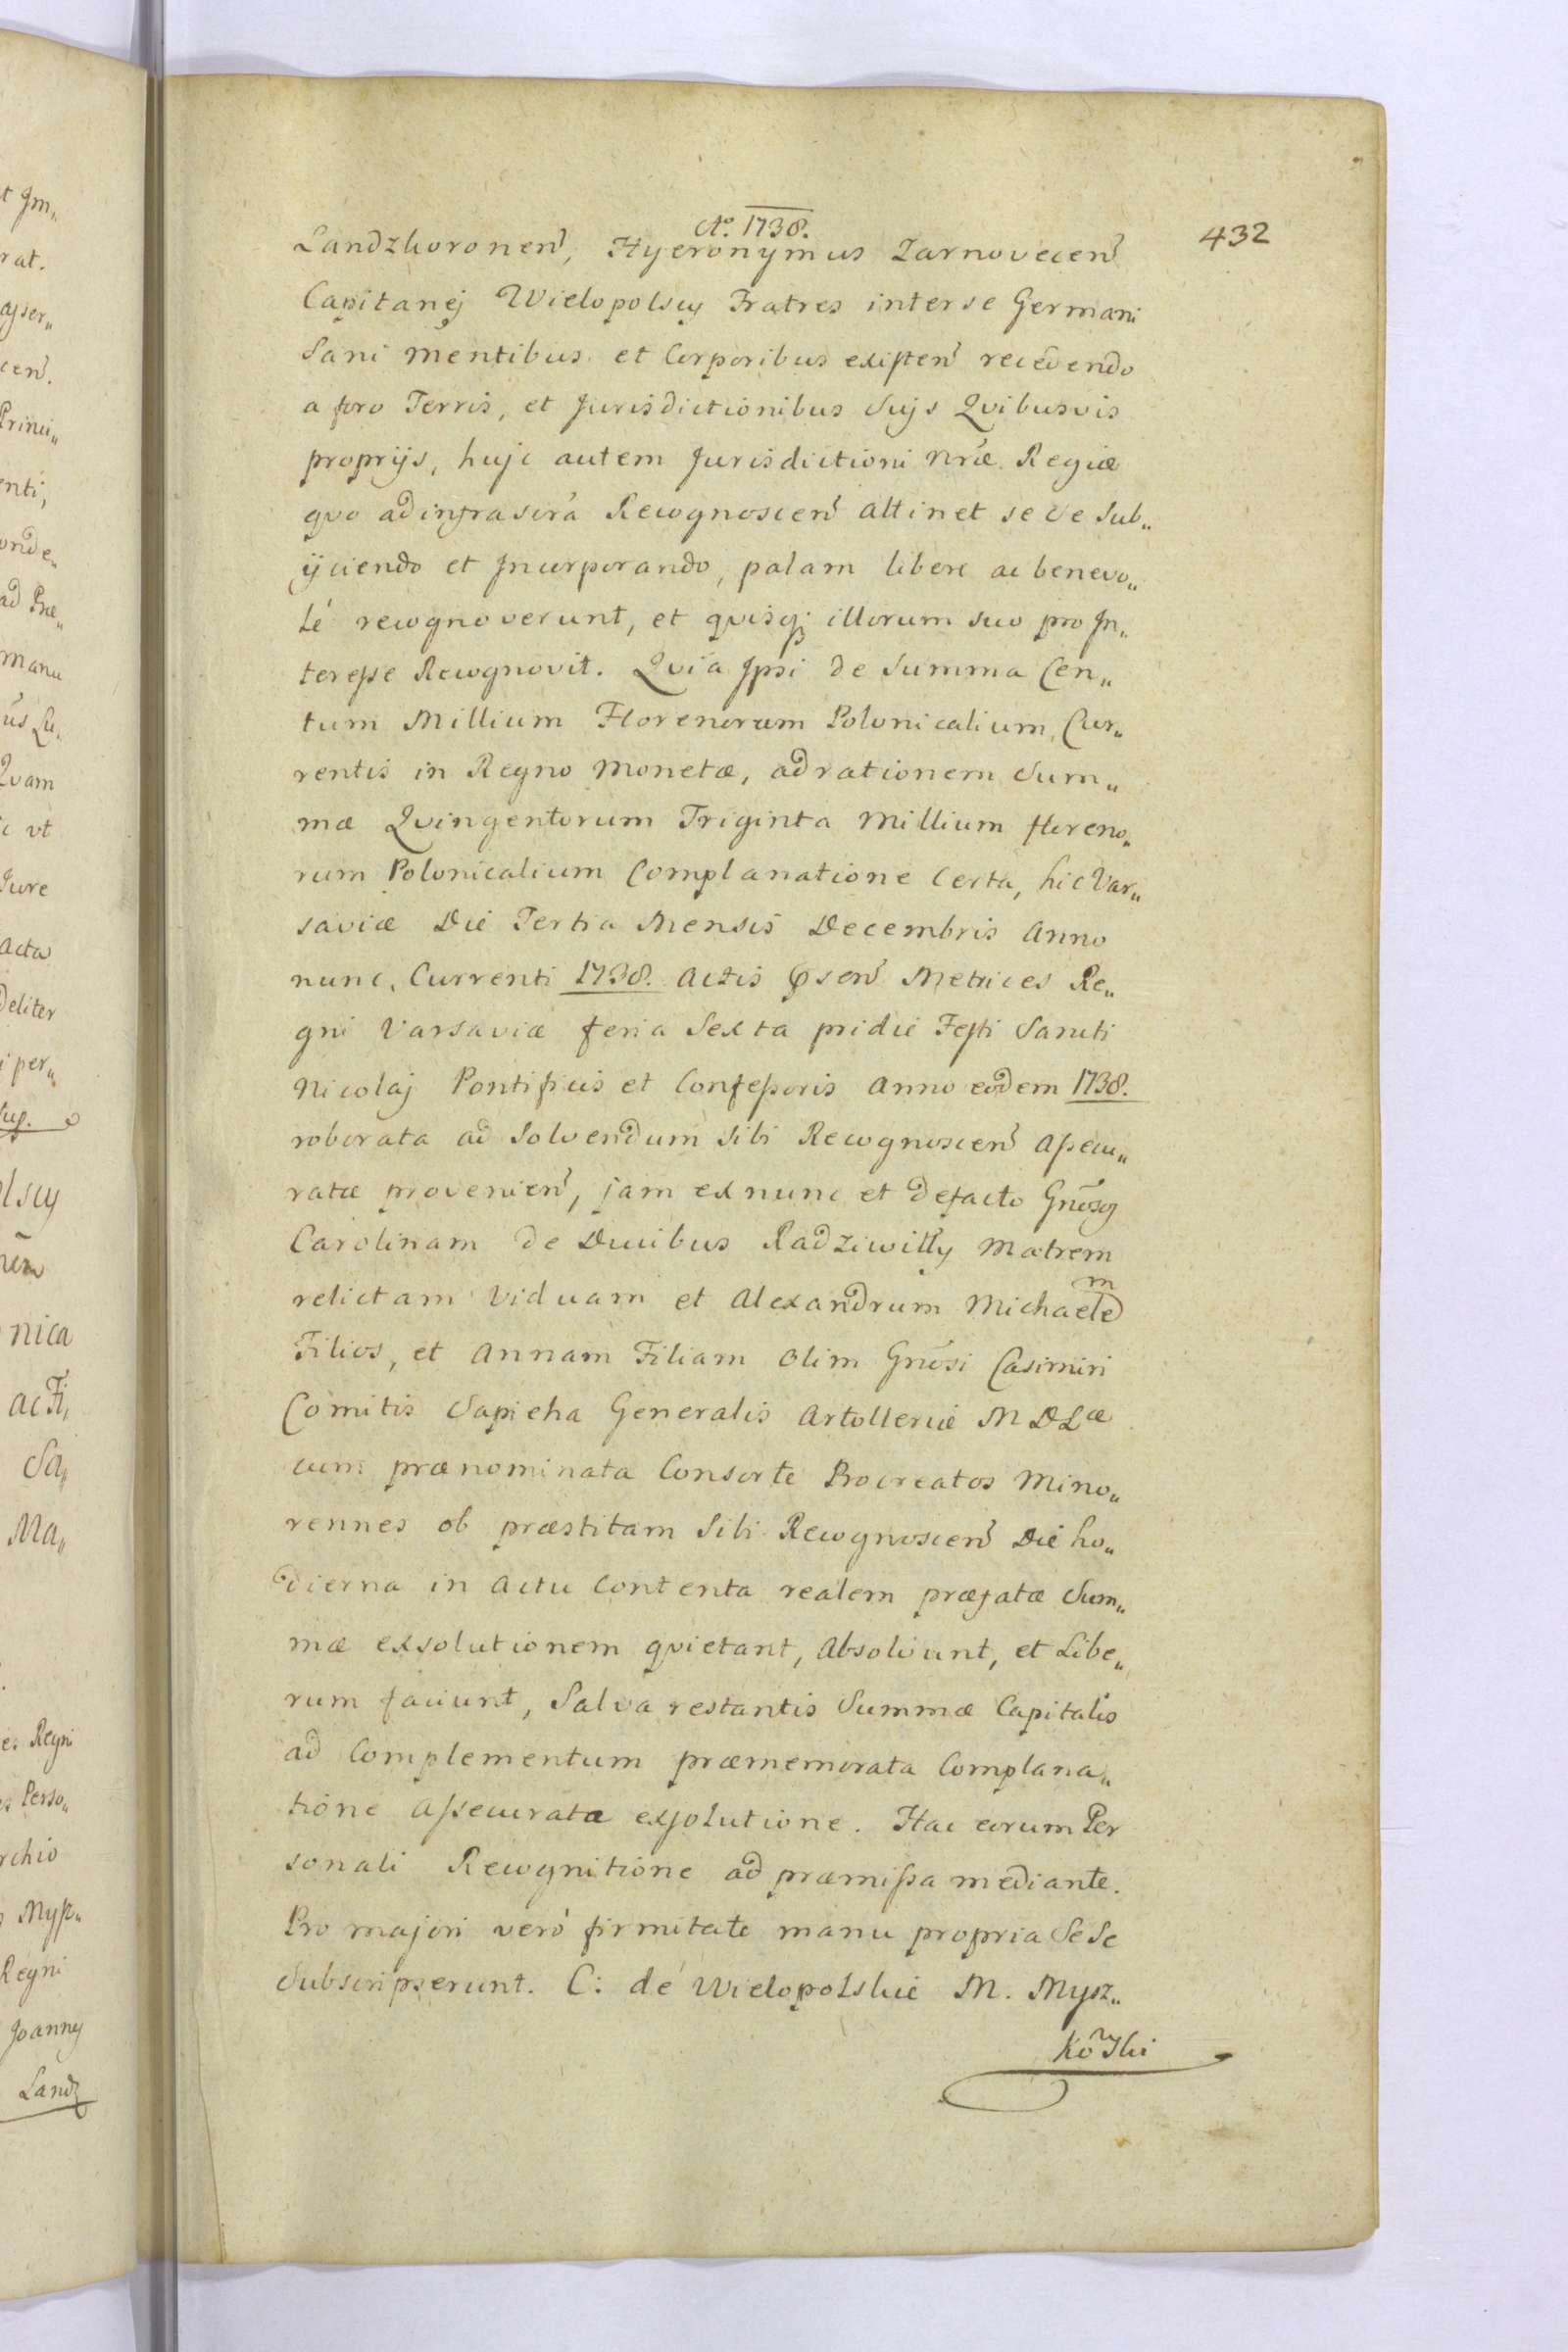 Ao. 1738.
432
Landzkoronen, Hyeronymus Zarnovecen
Capitanej Wielopolscy Fratres inter se Germani
Sani mentibus et Corporibus existen recedendo
a foro Terris, et Jurisdictionibus Suijs Qvibusvis
proprijs, hujc autem Jurisdictioni nræ Regiæ
qvo ad infrascra Recognoscen attinet se se Sub„
ijciendo et Incorporando, palam libere ac benevo„
lé recognoverunt, et qvisq; illorum suo pro In„
teresse Recognovit. Qvia Ipsi de Summa Cen„
tum Millium Florenorum Polonicalium, Cur„
rentis in Regno Monetæ, ad rationem Sum„
mæ Qvingentorum Triginta Millium floreno„
rum Polonicalium Complanatione Certa, hic Var„
saviæ Die Tertia Mensis Decembris Anno
nunc, Currenti 1738. Actis psen Metrices Re„
gni Varsaviæ feria Sexta pridie Festi Sancti
Nicolaj Pontificis et Confessoris Anno eodem 1738.
roborata ad Solvendum Sibi Recognoscen Assecu„
ratæ provenien, jam ex nunc et de facto Gnosg
Carolinam de Ducibus Radziwiłły Matrem
relictam Viduam et Alexandrum Michaelem
Filios, et Annam Filiam olim Gnosi Casimiri
Comitis Sapieha Generalis Artolleriæ M D Læ
cum prænominata Consorte Procreatos Mino„
rennes ob præstitam Sibi Recognoscen Die ho„
dierna in Actu Contenta realem præfatæ Sum„
mæ exsolutionem qvietant, Absolvunt, et Libe„
rum faciunt, Salva restantis Summæ Capitalis
ad Complementum præmemorata Complana„
tione Assecuratæ exsolutione. Hac eorum Per
sonali Recognitione ad præmissa mediante.
Pro majori veró firmitate manu propria Se Se
Subscripserunt. C: de Wielopolskie M. Mysz„
Kowski